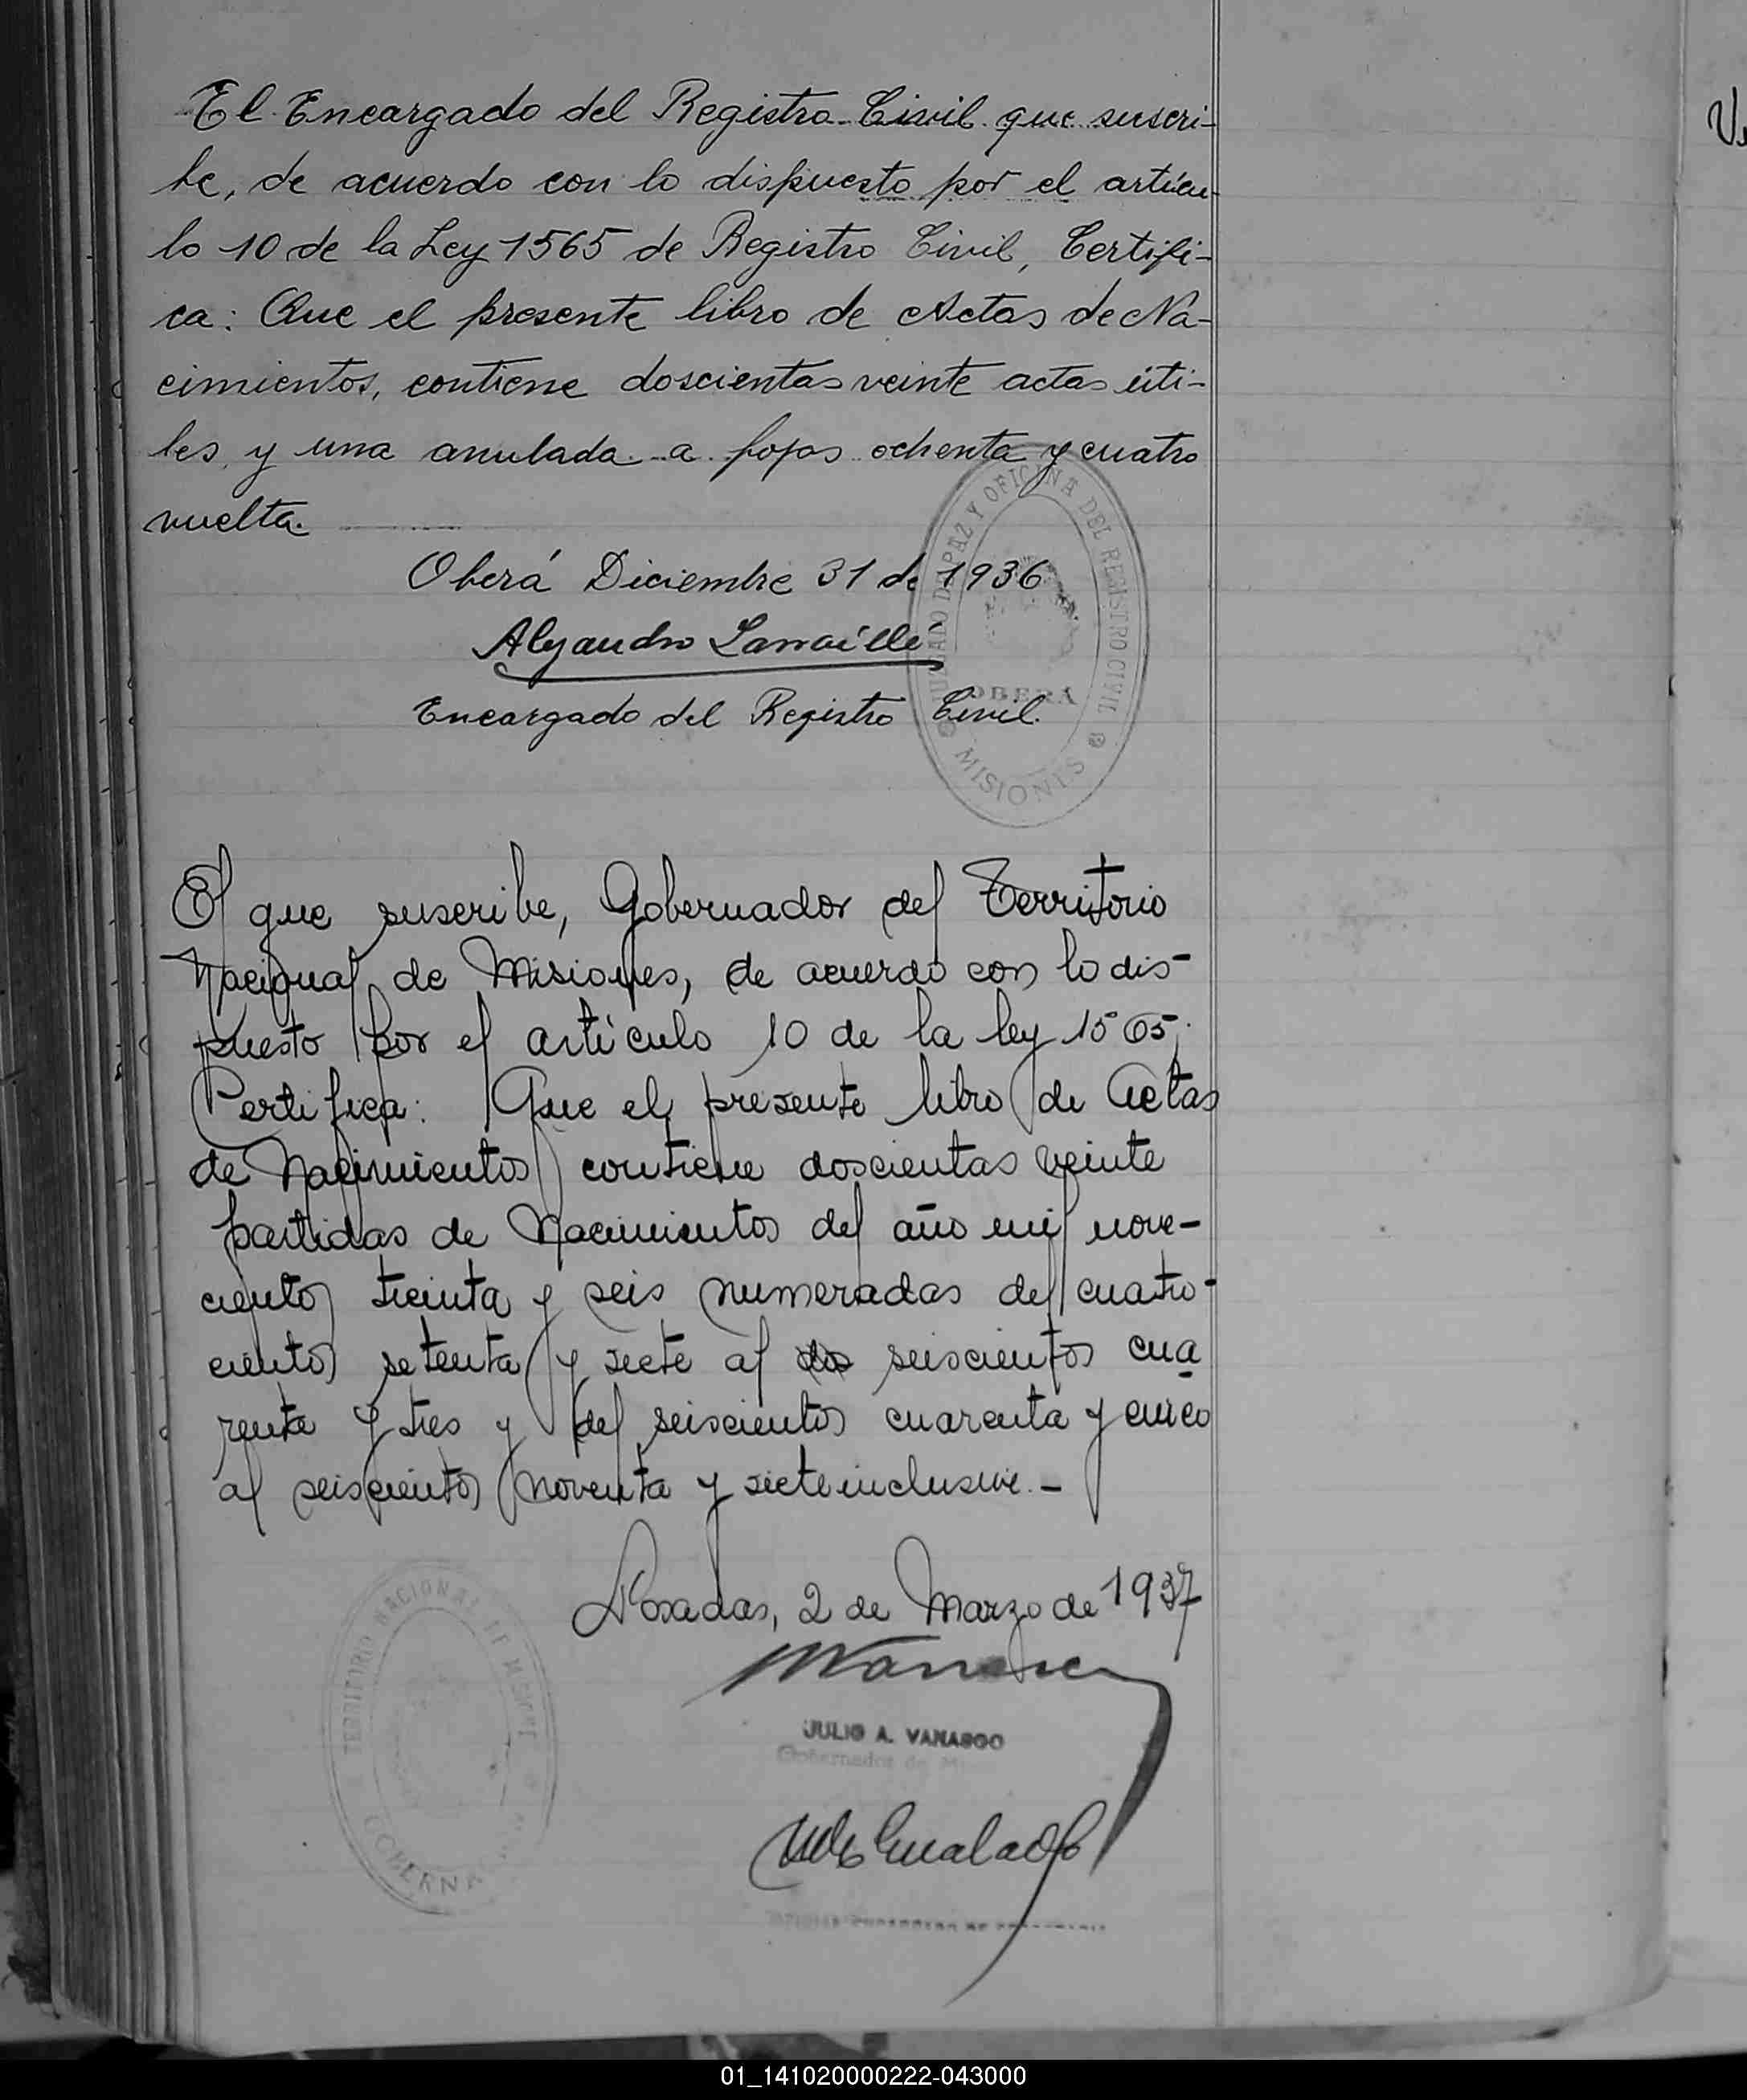 El Encargado del Registro Civil que suscri-
be, de acuerdo con lo dispuesto por el artícu-
lo 10 de la Ley 1565 de Registro Civil, Certifi-
ca: Que el presente libro de Actas de Na-
cimientos, contiene doscientas veinte actas úti-
les y una anulada a fojas ochenta y cuatro
vuelta.
Oberá Diciembre 31 de 1936
Alejandro
Encargado del Registro Civil.
JUZGADO DE PAZ Y OFICINA DEL REGISTRO CIVIL
OBERÁ
MISIONES
El que suscribe, Gobernador del Territorio
Nacional de Misiones, de acuerdo con lo dis-
puesto por el artículo 10 de la ley 1565;
Certifica: Que el presente libro de Actas
de Nacimientos contiene doscientas veinte
partidas de Nacimientos del año mil nove-
cientos treinta y seis numeradas del cuatro-
cientos setenta y siete al seiscientos cua
renta y tres y del seiscientos cuarenta y cinco
al seiscientos noventa y siete inclusive.-
Posadas, 2 de Marzo de 1937
TERRITORIO NACIONAL DE
JULIO A. VANASCO
Gobernador de